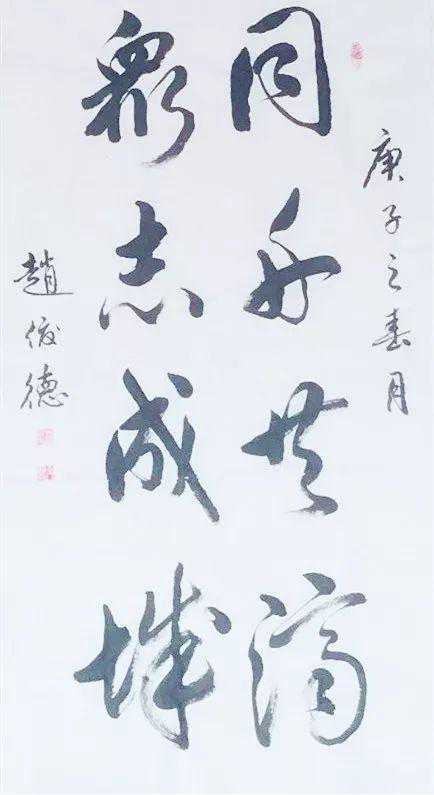 庚子之春月
同舟共濟
衆志成城
趙俊德